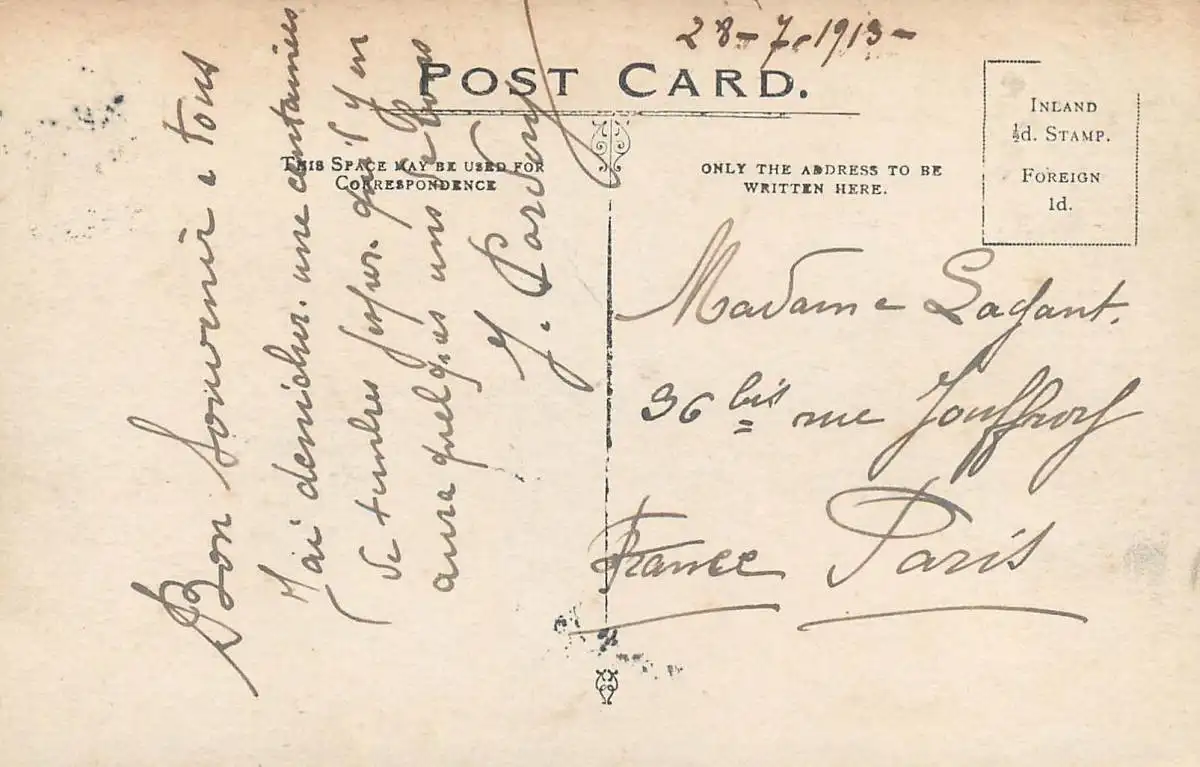 28-7-1913-
POST CARD.
THIS SPACE MAY BE USED FOR
CORRESPONDENCE
ONLY THE ADDRESS TO BE
WRITTEN HERE.
INLAND
½d. STAMP.
FOREIGN
1d.
Bon Souvenir a tous
J'ai denicher. une centaines
de timbres j'espère. qu'il y en
aura quelques uns de bons
J. Pardory
Madame Lagant.
36 bis rue Jouffroy
France Paris